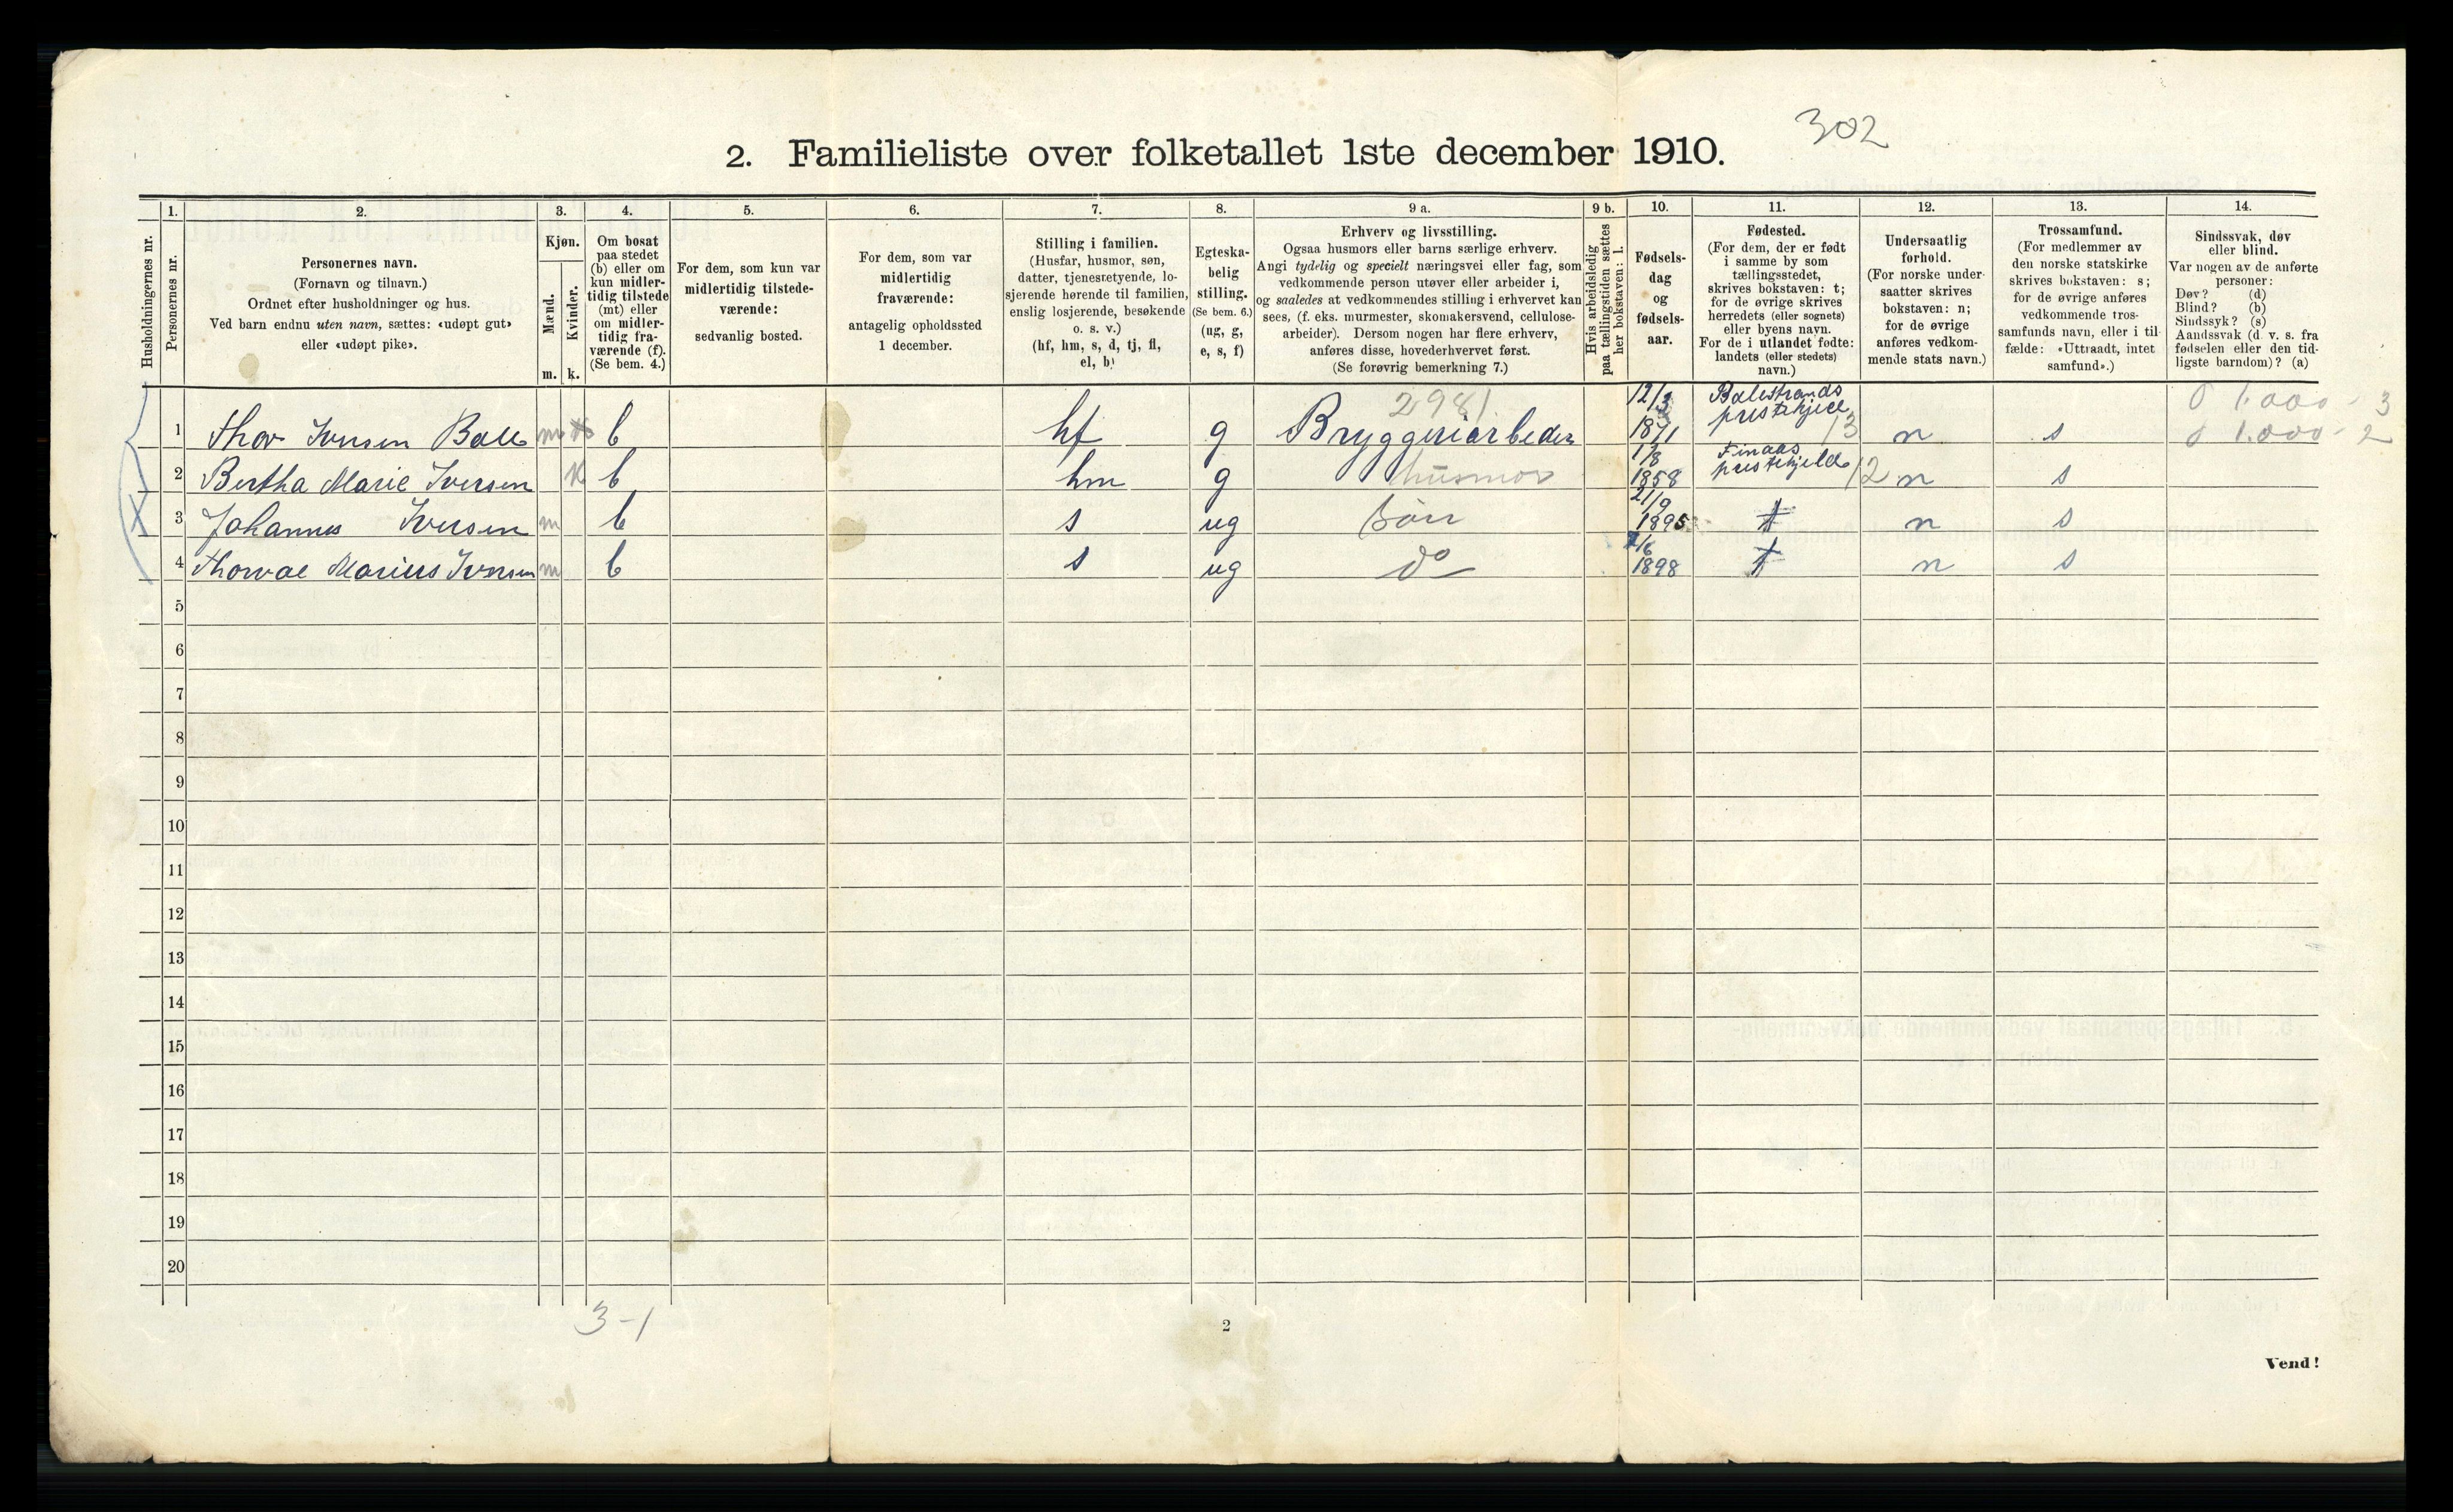 302
2. Familieliste over folketallet 1ste december 1910.
Husholdningernes nr.
1.
Personernes nr.
2.
Personernes navn.
(Fornavn og tilnavn.)
Ordnet efter husholdninger og hus.
Ved barn endnu uten navn, sættes: «udøpt gut»
eller «udøpt pike».
3.
Kjøn.
Mænd.
Kvinder.
m. k.
4.
Om bosat
paa stedet
(b) eller om
kun midler-
tidig tilstede
(mt) eller
om midler-
tidig fra-
værende (f).
(Se bem. 4.)
5.
For dem, som kun var
midlertidig tilstede-
værende:
sedvanlig bosted.
6.
For dem, som var
midlertidig
fraværende:
antagelig opholdssted
1 december.
7.
Stilling i familien.
(Husfar, husmor, søn,
datter, tjenestetyende, lo-
sjerende hørende til familien,
enslig losjerende, besøkende
o. s. v.)
(hf, hm, s, d, tj, fl,
el, b)
8.
Egteska-
belig
stilling.
(Se bem. 6.)
(ug, g,
e, s, f)
9 a.
Erhverv og livsstilling.
Ogsaa husmors eller barns særlige erhverv.
Angi tydelig og specielt næringsvei eller fag, som
vedkommende person utøver eller arbeider i,
og saaledes at vedkommendes stilling i erhvervet kan
sees, (f. eks. murmester, skomakersvend, cellulose-
arbeider). Dersom nogen har flere erhverv,
anføres disse, hovederhvervet først.
(Se forøvrig bemerkning 7.)
9 b.
Hvis arbeidsledig
paa tællingstiden sættes
her bokstaven: l.
10.
Fødsels-
dag
og
fødsels-
aar.
11.
Fødested.
(For dem, der er født
i samme by som
tællingsstedet,
skrives bokstaven: t;
for de øvrige skrives
herredets (eller sognets)
eller byens navn.
For de i utlandet fødte:
landets (eller stedets)
navn.)
12.
Undersaatlig
forhold.
(For norske under-
saatter skrives
bokstaven: n;
for de øvrige
anføres vedkom-
mende stats navn.)
13.
Trossamfund.
(For medlemmer av
den norske statskirke
skrives bokstaven: s;
for de øvrige anføres
vedkommende tros-
samfunds navn, eller i til-
fælde: «Uttraadt, intet
samfund».)
14.
Sindssvak, døv
eller blind.
Var nogen av de anførte
personer:
Døv? (d)
Blind? (b)
Sindssyk? (s)
Aandssvak (d. v. s. fra
fødselen eller den tid-
ligste barndom)? (a)
2981 12/3 Balestrands 1.000 - 3
1 Thor Iversen Balle m b hf g Bryggeriarbeder 1871 prestehjeld 13 n s 1.000 - 2
1/8 Finaas
2 Bertha Marie Iversen k b hm g husmor 1858 prestehjeld 12 n s
21/9
3 Johannes Iversen m b s ug Søn 1895 t n s
4 Thorval Marius Iversen m b s ug do 1898 t n s
5
6
7
8
9
10
11
12
13
14
15
16
17
18
19
20
3-1
2
Vend!